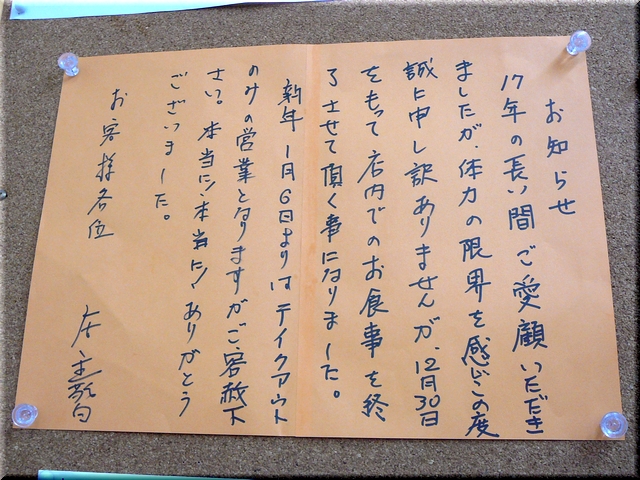 お知らせ
17年の長い間ご愛顧いただき
ましたが、体力の限界を感じこの度
誠に申し訳ありませんが、12月30日
をもって店内でのお食事を終
了させて頂く事になりました。
新年1月6日よりはテイクアウト
のみの営業となりますがご容赦下
さい。本当に!本当に!ありがとう
ございました。
お客様各位
店主敬白